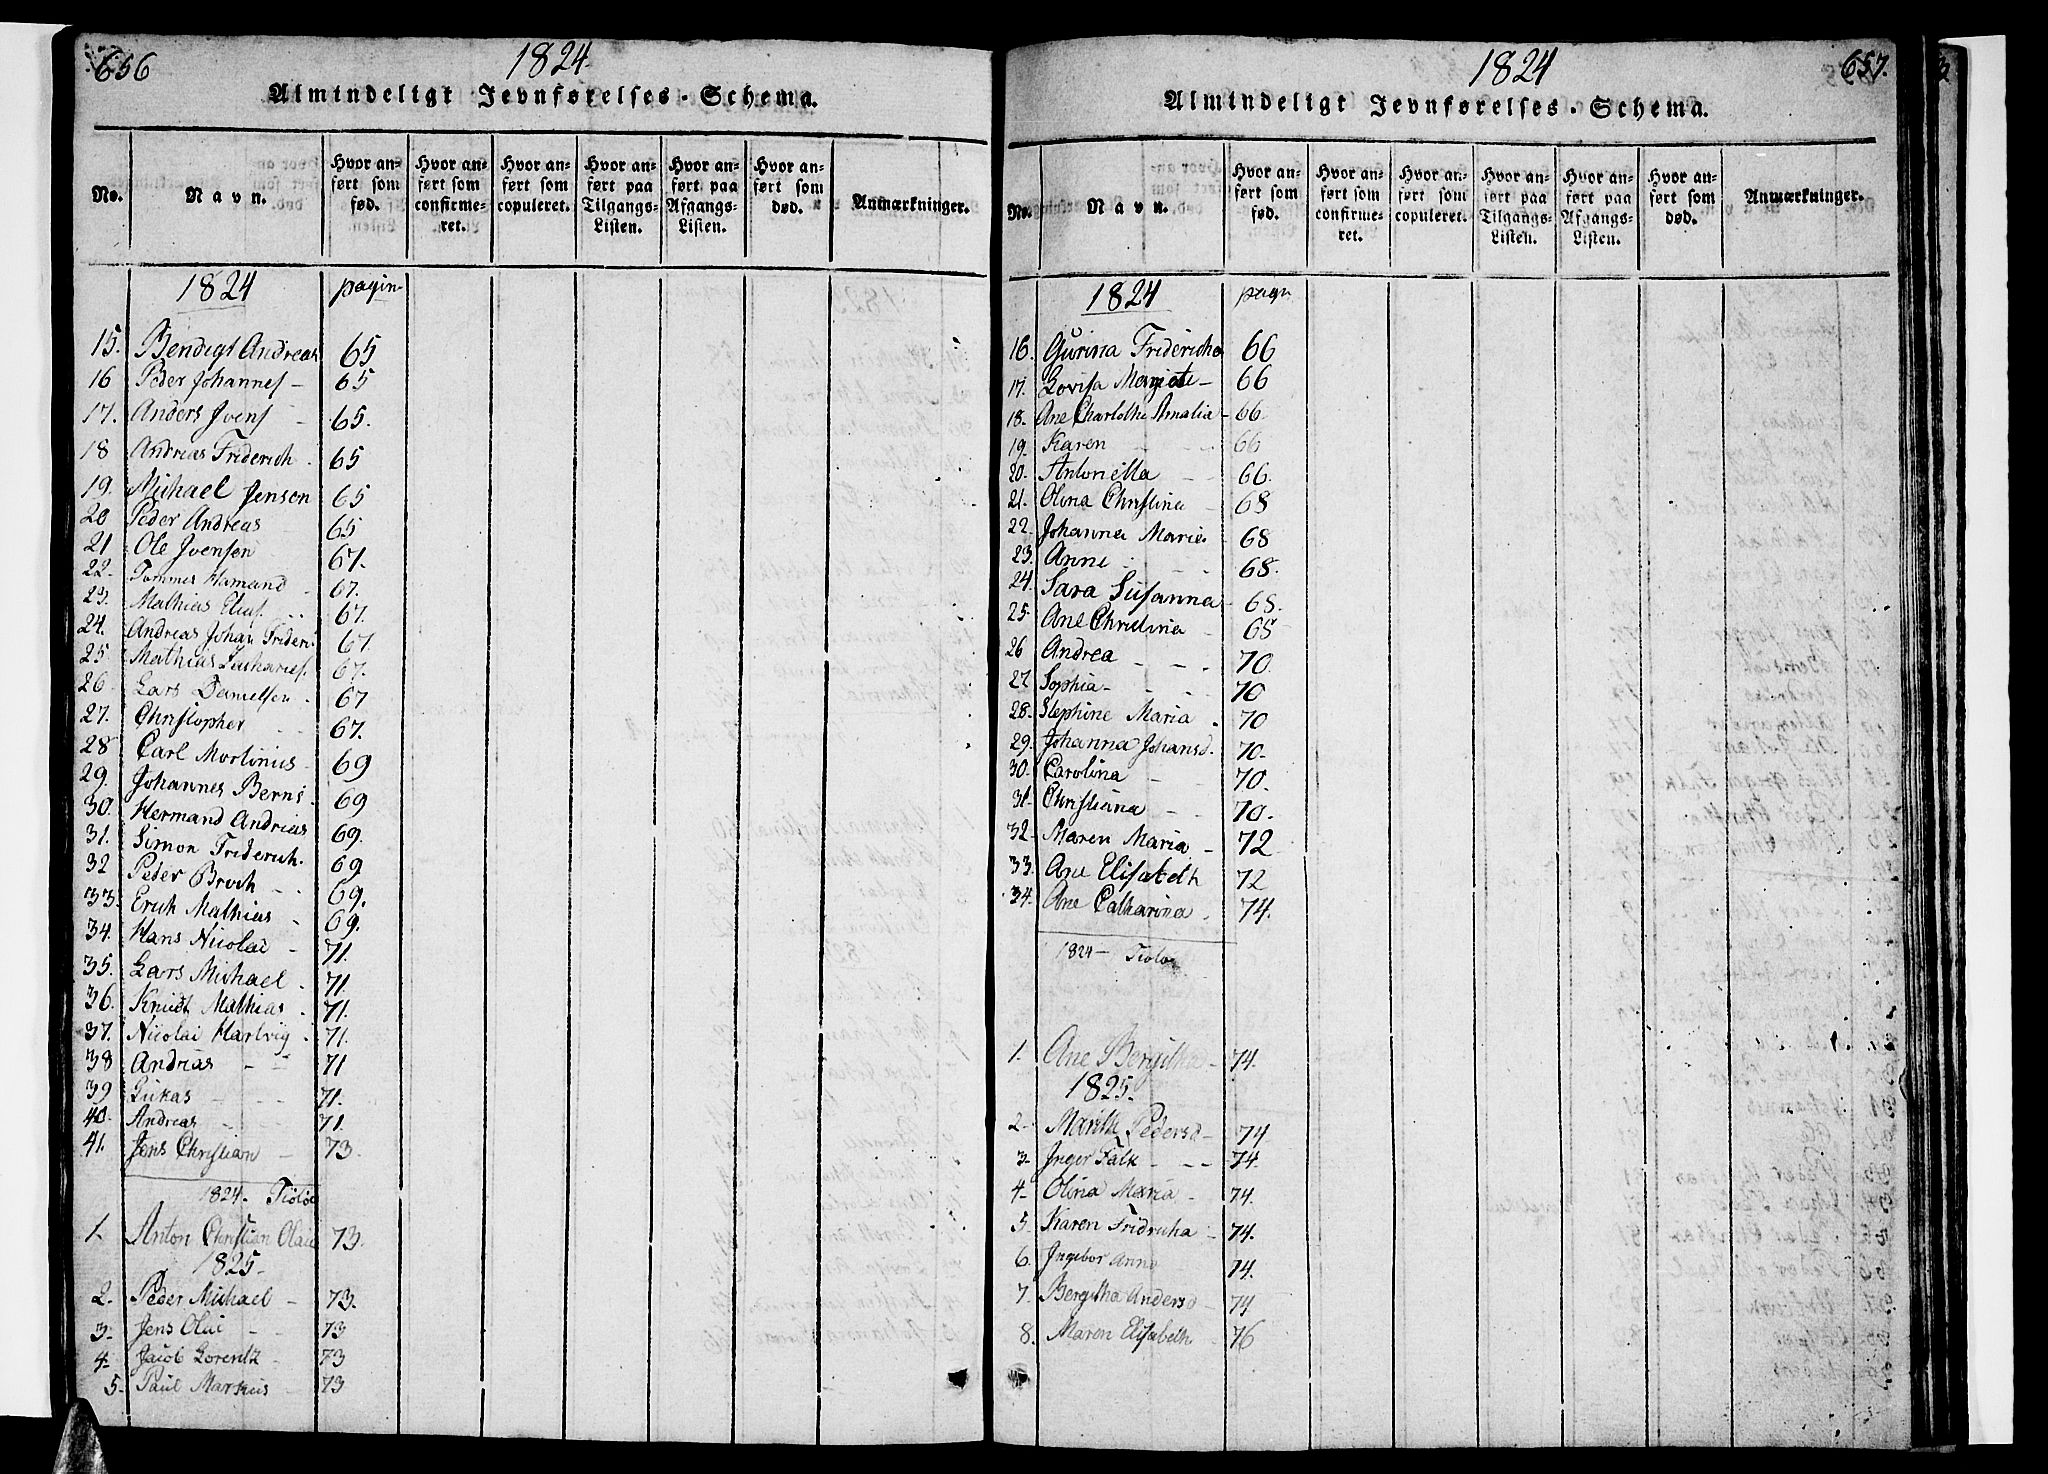 656
1824
Almindeligt Jevnførelses-Schema.
No.
Navn.
Hvor anført som fød.
Hvor anført som confirmeret.
Hvor anført som copuleret.
Hvor anført paa Tilgangs-Listen.
Hvor anført paa Afgangs-Listen.
Hvor anført som død.
Anmærkninger.
1824 pagin
15. Bendigt Andreas 65
16 Peder Johannes - 65
17. Anders Ivers - 65.
18 Andreas Friderich . 65
19. Michael Jenson 65
20 Peder Andreas 65
21 Ole Ivensen 67.
22. Tommes Hamand 67.
23. Mathias Elias 67.
24. Andreas Johan Frideri 67
25 Mathias Zacharies. 67.
26 Lars Danielsen . 67
27. Christopher 67.
28 Carl Mortinius 69
29. Johannes Berns. 69
30. Hermand Andrias 69.
31. Simon Friderich. 69
32 Peder Broch 69.
33. Erich Mathias 69.
34. Hans Nicolai - 71.
35. Lars Michael . 71.
36. Knudt Mathias . 71.
37. Nicolai Hartvig . 71.
38 Andrias - - 71
39 Lukas - - - 71.
40. Andreas 71.
41. Jens Christian - 73.
1824. Tiøløe
1. Anton Christian Olai 73.
1825.
2. Peder Michael - 73.
3- Jens Olai - - 73
4- Jacob Lorentz - 73
5. Paul Markus - 73
657.
1824
Almindeligt Jevnførelses-Schema.
No.
Navn.
Hvor anført som fød.
Hvor anført som confirmeret.
Hvor anført som copuleret.
Hvor anført paa Tilgangs-Listen.
Hvor anført paa Afgangs-Listen.
Hvor anført som død.
Anmærkninger.
1824 pagn
16. Gurina Fridericha 66
17. Lovisa Margrete - 66
18. Ane Charlothe Amalia - 66
19. Karen - - - 66
20. Antonetta - - 66.
21. Olina Christina - 68
22. Johanna Maria 68
23. Anne - - - 68.
24. Sara Susanna 68.
25. Ane Christina - 68
26 Andrea - - . 70.
27 Sophia - - - 70
28. Stephine Maria . 70
29. Johanna Johansd. 70.
30. Carolina - 70.
31. Christiana - 70.
32. Maren Maria - 72
33. Ane Elisabeth 72
34. Ane Catharina . 74.
1824 - Tiøløe
1. Ane Bergitha - 74.
1825.
2. Marith Pedersd - 74
3- Inger Falk - - - 74.
4- Olina Maria - 74.
5. Karen Fridricha 74.
6. Ingebor Anna 74.
7. Bergitha Andersd - 74
8. Maren Elisabeth 76